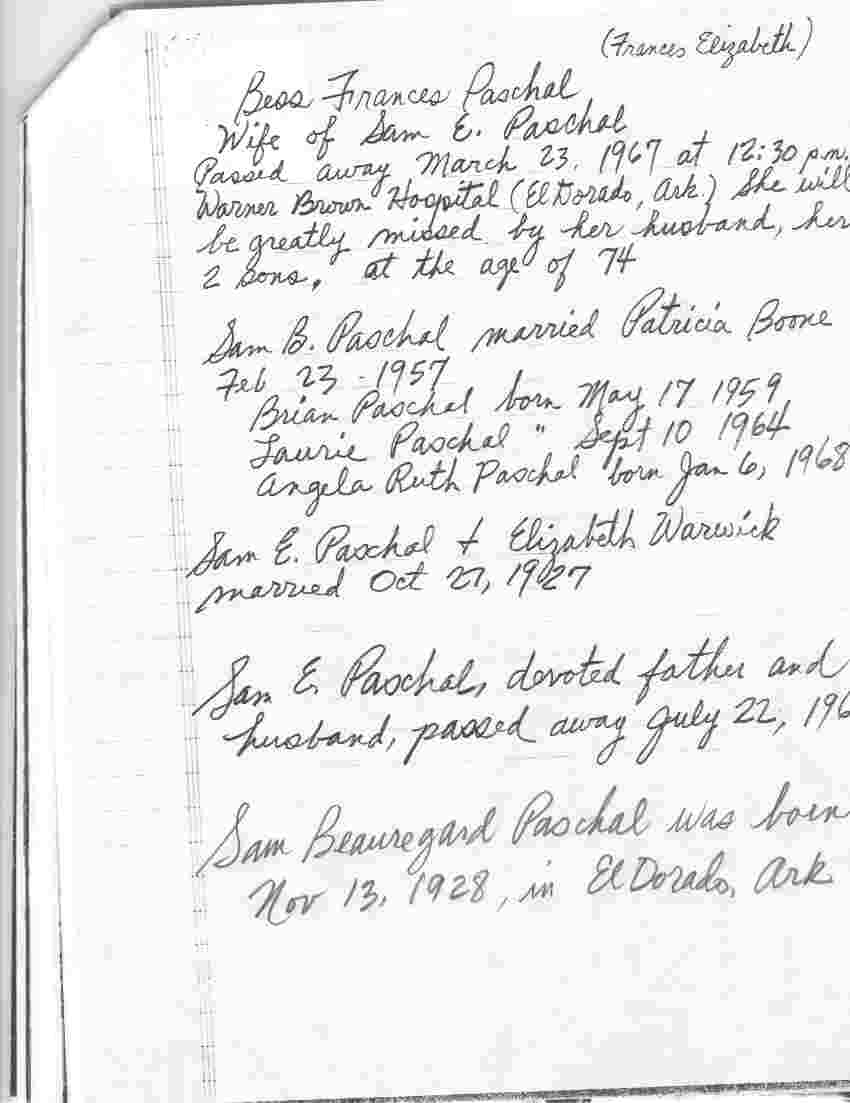 (Frances Elizabeth)
Bess Frances Paschal
Wife of Sam E. Paschal
Passed away March 23, 1967 at 12:30 p.m.
Warner Brown Hospital (El Dorado, Ark.) She will
be greatly missed by her husband, her
2 sons, at the age of 74
Sam B. Paschal married Patricia Boone
Feb 23 - 1957
Brian Paschal born May 17 1959
Laurie Paschal " Sept 10 1964
Angela Ruth Paschal born Jan 6, 1968
Sam E. Paschal + Elizabeth Warwick
married Oct 27, 1927
Sam E. Paschal, devoted father and
husband, passed away July 22, 196
Sam Beauregard Paschal was born
Nov 13, 1928, in El Dorado, Ark